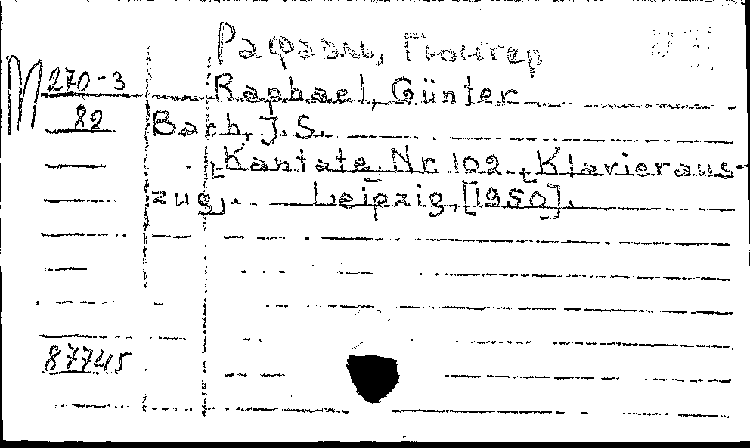 Рафаэль, Гюнтер
М 270-3 Raphael, Günter
82 Bach, J. S.
[Kantate, Nr 102. [Klavieraus-
zug]. Leipzig, [1950].
87745